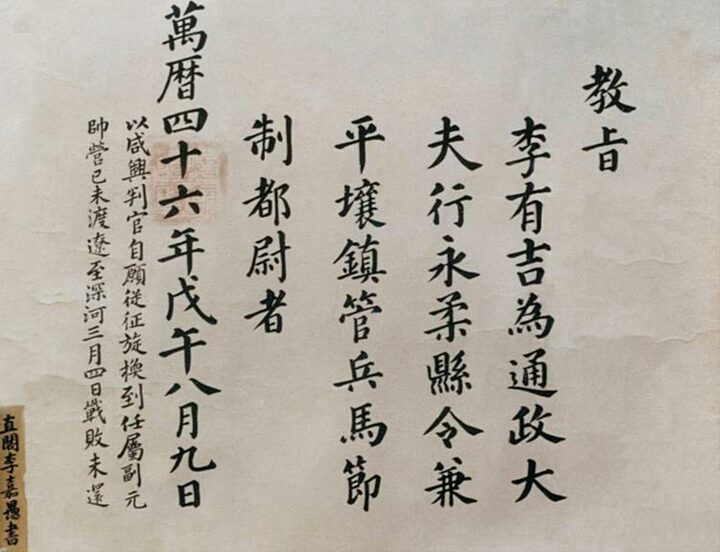 教旨
李有吉為通政大
夫行永柔縣令兼
平壤鎮管兵馬節
制都尉者
萬曆四十六年戊午八月九日
以咸興判官自願從征旋換到任屬副元
帥營已未渡遼至深河三月四日戰敗未還
直閣李嘉愚書